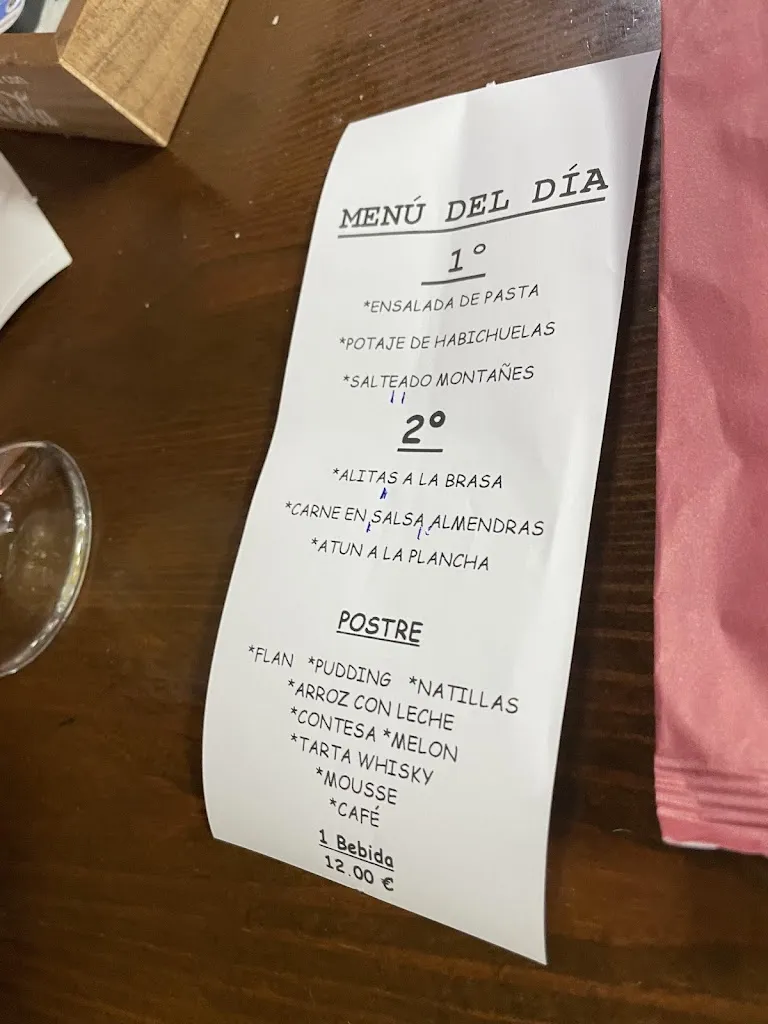 MENÚ DEL DÍA
1º
*ENSALADA DE PASTA
*POTAJE DE HABICHUELAS
*SALTEADO MONTAÑES
2º
*ALITAS A LA BRASA
*CARNE EN SALSA ALMENDRAS
*ATUN A LA PLANCHA
POSTRE
*FLAN *PUDDING *NATILLAS
*ARROZ CON LECHE
*CONTESA *MELON
*TARTA WHISKY
*MOUSSE
*CAFÉ
1 Bebida
12.00 €